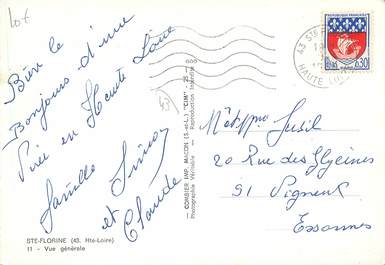 lot
Bien le
Bonjour d'une
Virée en Haute Loire
famille Simon
et Claude
43
STE-FLORINE (43. Hte-Loire)
11 - Vue générale
COMBIER IMP. MACON (S.-et-L.) "CIM"
Photographie Véritable - Reproduction Interdite
43 STE
HAUTE LOIRE
REPUBLIQUE FRANÇAISE
0,30
M et Mme
20 Rue des Glycines
91 Vigneux
Essonnes